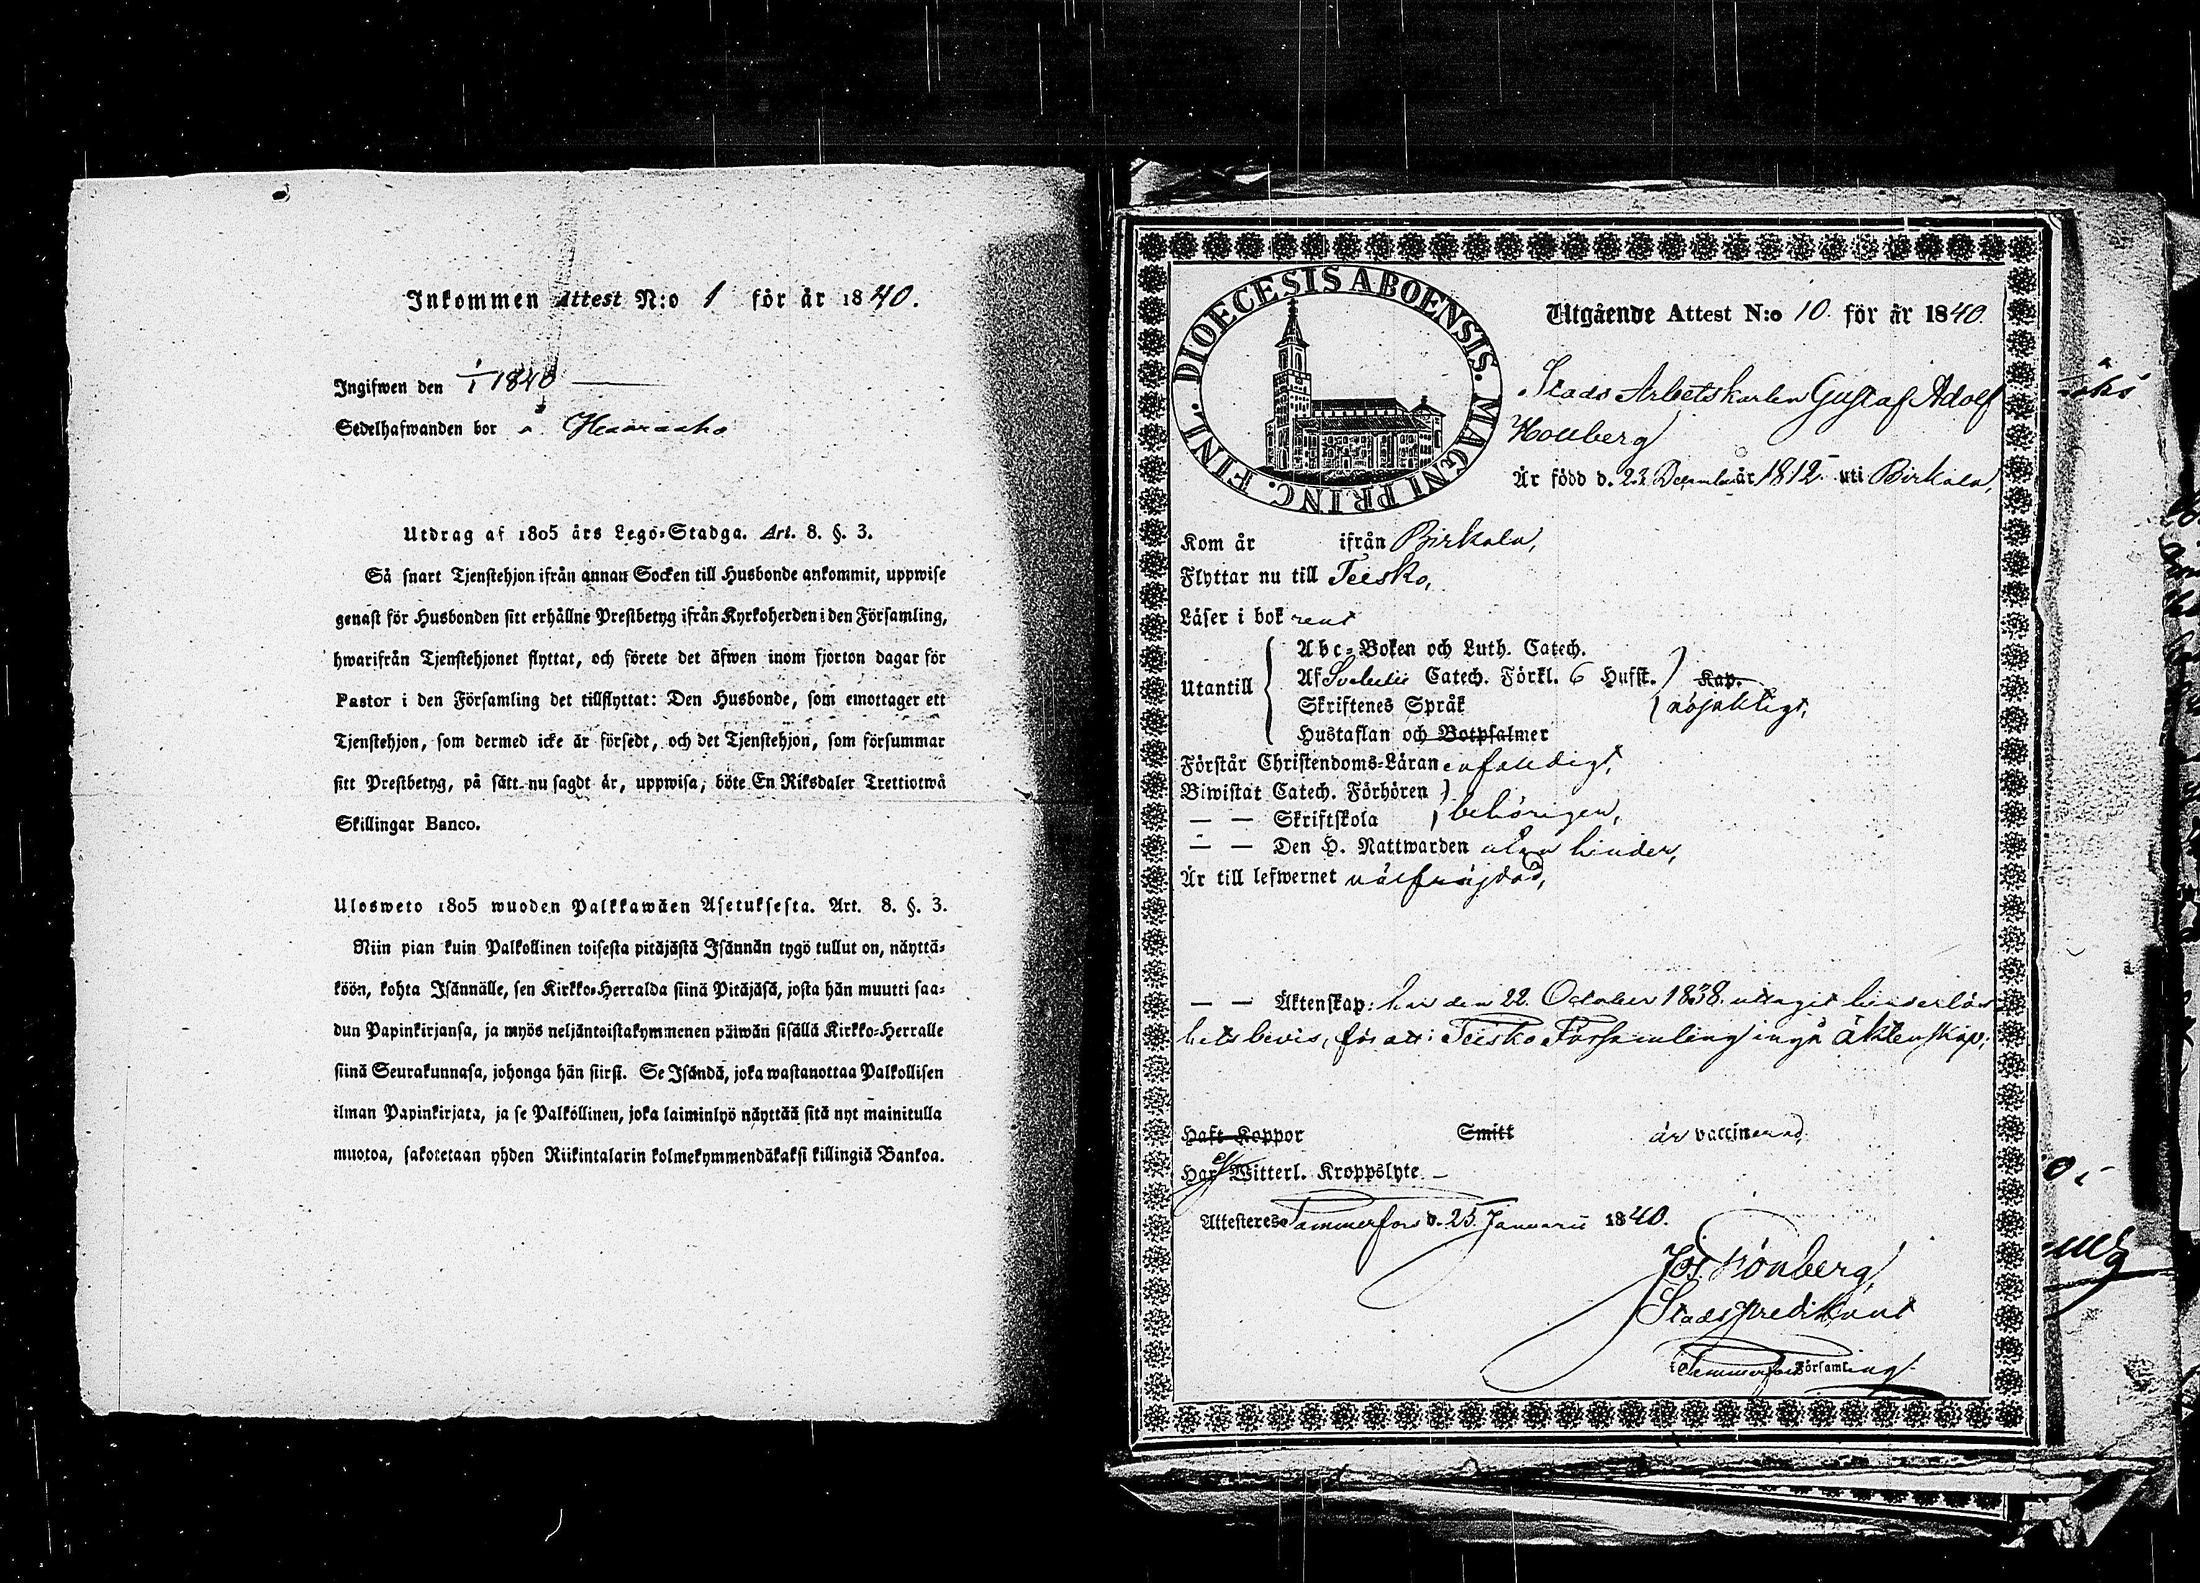 Inkommen Attest N:o 1 för år 1840.
Ingifwen den 1/1 1840
Sedelhafwanden bor å Haaraaho
Utdrag af 1805 års Lego-Stadga. Art. 8. §. 3.
Så snart Tjenstehjon ifrån annan Socken till Husbonde ankommit, uppwise
genast för Husbonden sitt erhållne Prestbetyg ifrån Kyrkoherden i den Församling,
hwarifrån Tjenstehjonet flyttat, och förete det äfwen inom fjorton dagar för
Pastor i den Församling det tillflyttat: Den Husbonde, som emottager ett
Tjenstehjon, som dermed icke är försedt, och det Tjenstehjon, som försummar
sitt Prestbetyg, på sätt nu sagdt är, uppwisa, böte En Riksdaler Trettiotwå
Skillingar Banco.
Ulosweto 1805 wuoden Palkkawäen Asetuksesta. Art. 8. §. 3.
Niin pian kuin Palkollinen toisesta pitäjästä Isännän tygö tullut on, näyttä-
köön, kohta Isännälle, sen Kirkko-Herralda siinä Pitäjäsä, josta hän muutti saa-
dun Papinkirjansa, ja myös neljäntoistakymmenen päiwän sisällä Kirkko-Herralle
siinä Seurakunnasa, johonga hän siirsi. Se Isändä, joka wastanottaa Palkollisen
ilman Papinkirjata, ja se Palkollinen, joka laiminlyö näyttää sitä nyt mainitulla
muotoa, sakotetaan yhden Riikintalarin kolmekymmendäkaksi killingiä Bankoa.
DIOECESIS ABOENSIS. MAGNI PRINC. FINL.
Utgående Attest N:o 10. för år 1840.
Stads Arbetskarlen Gustaf Adolf
Honberg
Är född d. 23 December år 1812 uti Birkala,
Kom år ifrån Birkala,
Flyttar nu till Teisko,
Läser i bok rent
Abc-Boken och Luth. Catech.
Utantill Af Svebelii Catech. Förkl. 6 Hufst. Kap.
Skriftenes Språk nöjaktigt,
Hustaflan och Botpsalmer
Förstår Christendoms-Läran enfaldigt,
Biwistat Catech. Förhören
— — Skriftskola behörigen,
— — Den H. Nattwarden utan hinder,
Är till lefwernet välfräjdad,
— — Äktenskap: har den 22. October 1838. uttagit hinderlös-
hetsbevis, för att i Teisko Församling ingå äktenskap;
Haft Koppor Smitt är vaccinerad,
Har ej Witterl. Kroppslyte —
Attesteres Tammerfors d. 25. Januarii 1840.
Jos. Grönberg,
Stadspredikant
i Tammerfors Församling.